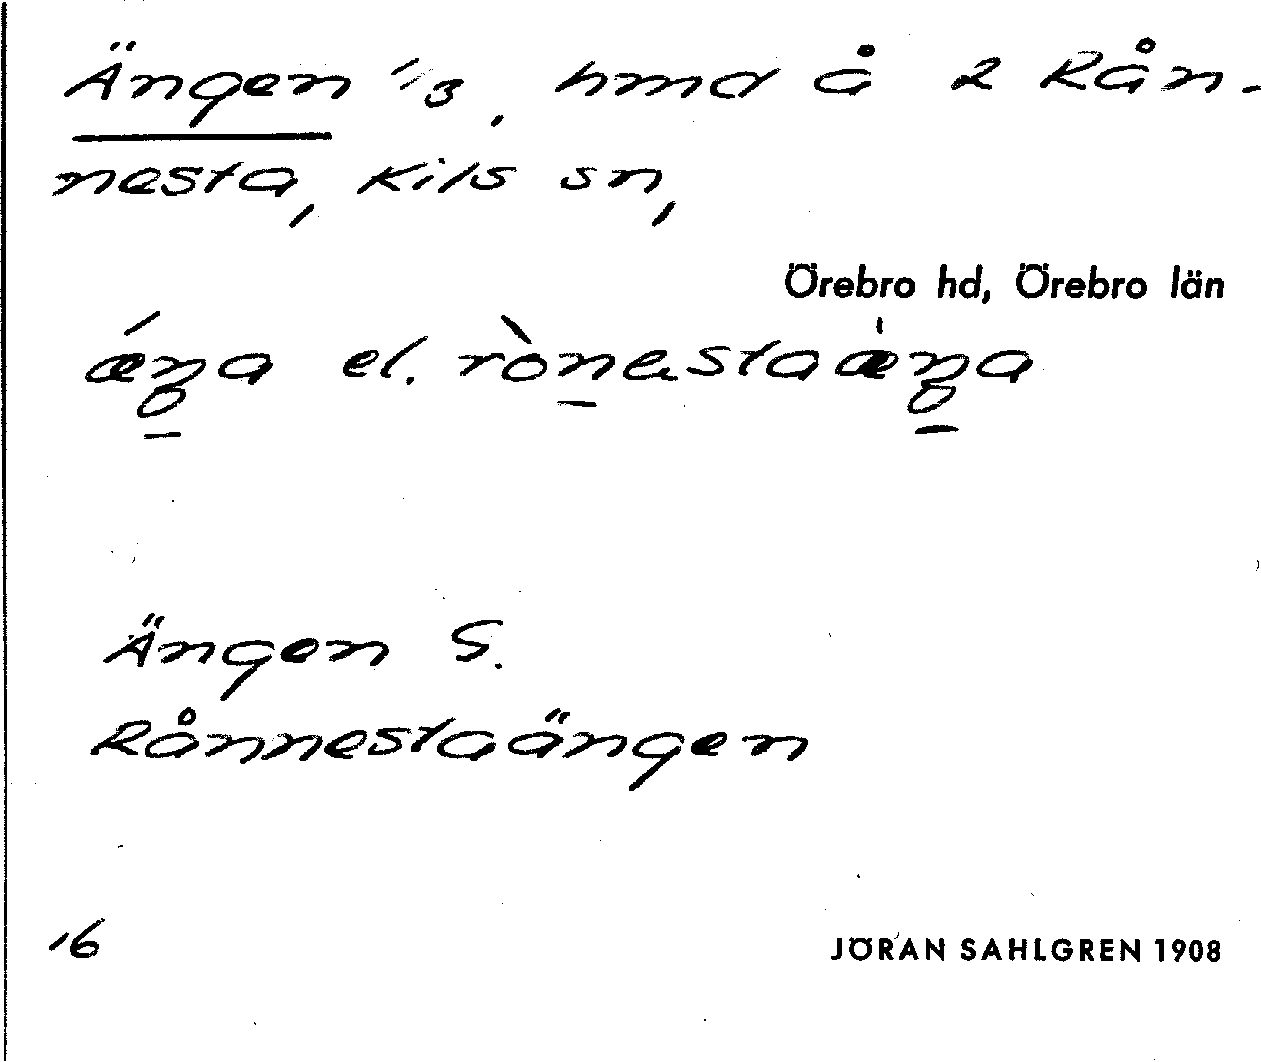 Ängen 1/3, hmd å 2 Rån-
nesta, Kils sn,
Örebro hd, Örebro län
ǽŋa el. rònestaæ̍ŋa
Ängen S.
Rånnestaängen
16
JÖRAN SAHLGREN 1908